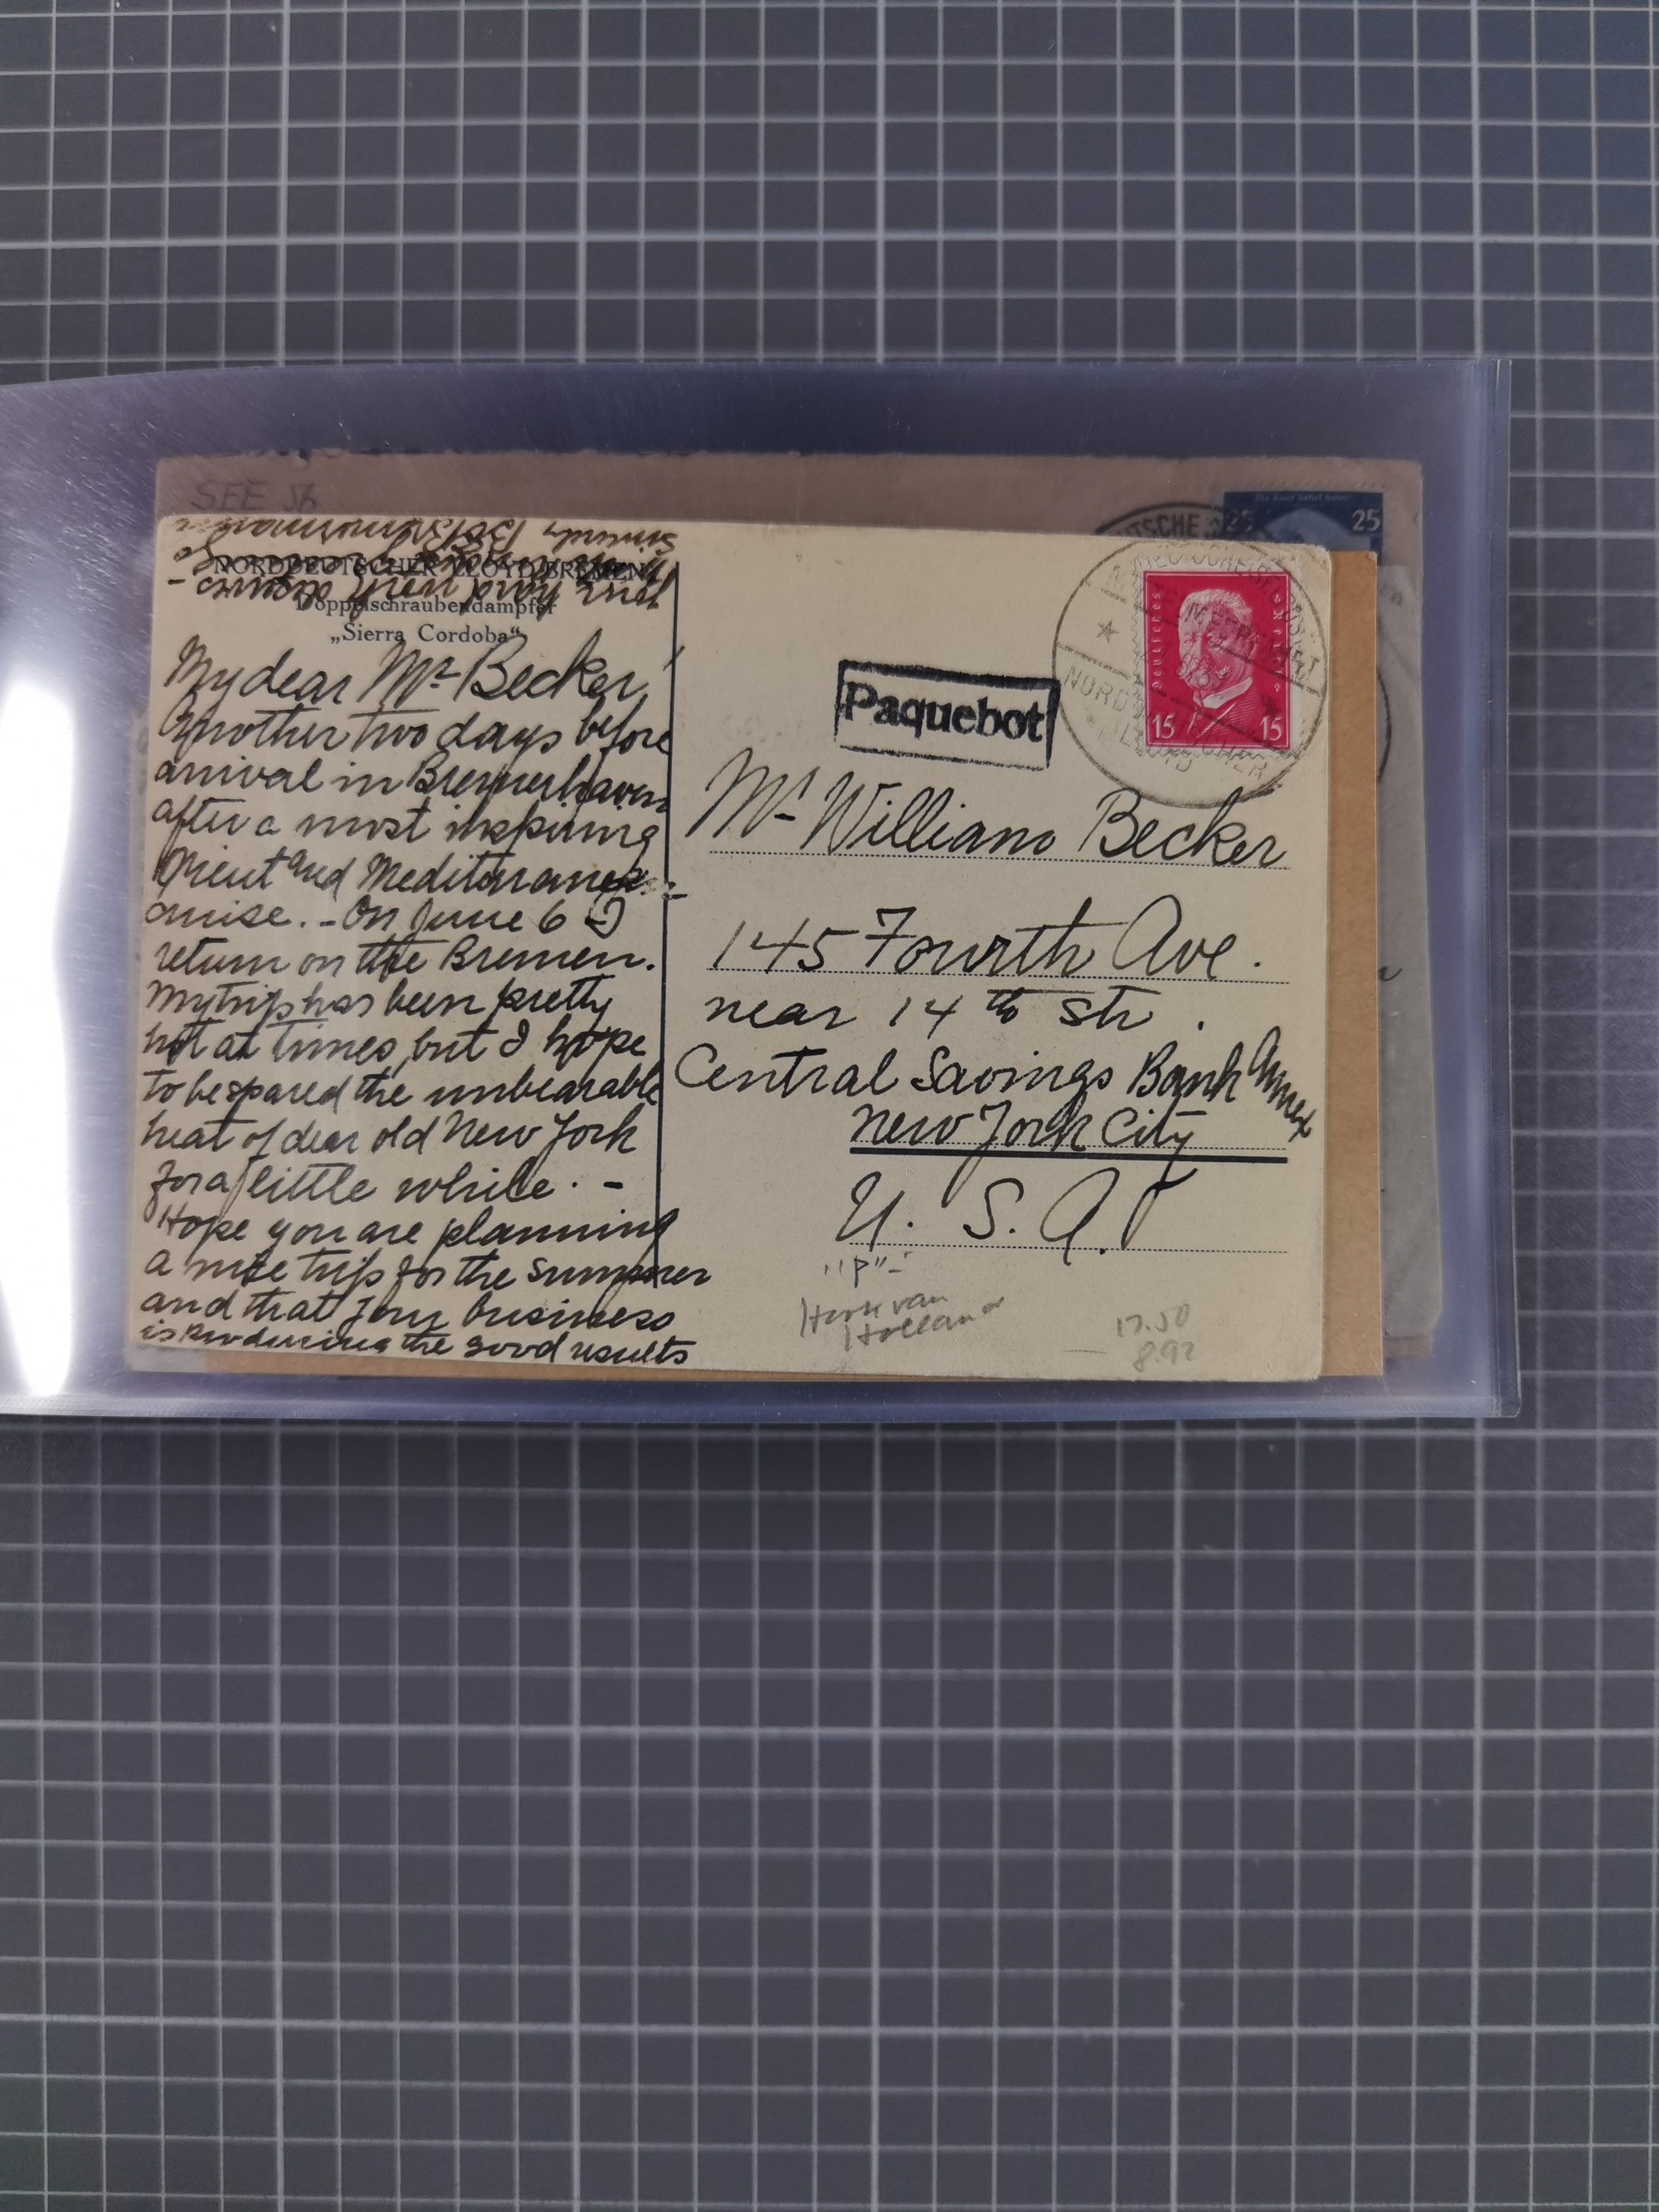 SEE 56
NORDDEUTSCHER LLOYD BREMEN
Doppelschraubendampfer
„Sierra Cordoba“
My dear Mr Becker,
Another two days before
arrival in Bremerhaven
after a most inspiring
Orient and Mediterranean
cruise. - On June 6 I
return on the Bremen.
My trip has been pretty
hot at times, but I hope
to be spared the unbearable
heat of dear old New York
for a little while. -
Hope you are planning
a nice trip for the summer
and that your business
is producing the good results
your hard work deserves -
Sincerely
Paquebot
Deutsches Reich
15 15
NORDDEUTSCHER
LLOYD
25 25
Mr William Becker
145 Fourth Ave.
near 14th Str.
Central Savings Bank Annex
New York City
U. S. A.
"P"-
Hoek van
Holland
17.50
8.92